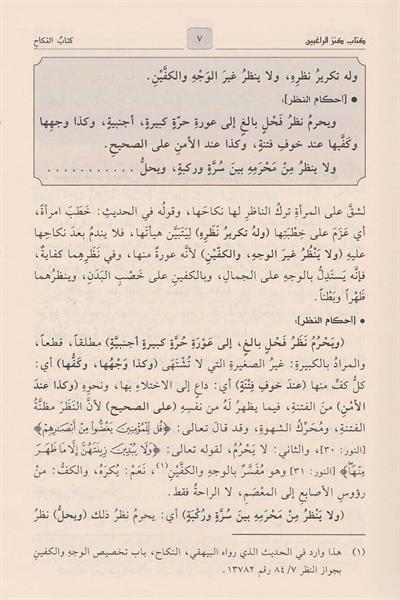 كتاب كنز الراغبين ٧ كتابُ النكاحِ
وله تكريرُ نظرِهِ، ولا ينظرُ غيرَ الوَجْهِ والكفَّيْنِ.
• [أحكام النظر]:
ويحرمُ نظرُ فَحْلٍ بالغٍ إلى عورةِ حرَّةٍ كبيرةٍ، أجنبيةٍ، وكذا وجهِها
وكفَّيها عند خوفِ فتنةٍ، وكذا عندَ الأمنِ على الصحيحِ.
ولا ينظرُ مِنْ مَحْرَمِهِ بينَ سُرَّةٍ وركبةٍ، ويحلُّ ...........
لشقَّ على المرأةِ تركُ الناظرِ لها نكاحَها، وقولُه في الحديثِ: خَطَبَ امرأةً،
أي عَزَمَ على خِطْبَتِها (ولهُ تكريرُ نَظَرِهِ) لِيَتَبَيَّنَ هيأتَها، فلا يندمُ بعدَ نكاحِها
عليهِ (ولا يَنْظُرُ غيرَ الوجهِ، والكفّيْنِ) لأنَّه عورةٌ منها، وفي نَظَرِهِما كفايةٌ،
فإنَّه يَسْتَدِلُّ بالوجهِ على الجمالِ، وبالكفينِ على خَصْبِ البَدَنِ، وينظرُهما
ظَهْراً وبَطْناً.
• [أحكام النظر]:
(ويَحْرُمُ نَظَرُ فَحْلٍ بالغٍ، إلى، عَوْرَةِ حُرَّةٍ كبيرةٍ أجنبيَّةٍ) مطلقاً، قطعاً،
والمرادُ بالكبيرةِ: غيرُ الصغيرةِ التي لا تُشْتَهَى (وكذا وَجْهُها، وكَفُّها) أي:
كلُّ كفٍّ منها (عندَ خوفِ فِتْنَةٍ) أي: داعٍ إلى الاختلاءِ بها، ونحوِهِ (وكذا عندَ
الأَمْنِ) من الفتنةِ، فيما يظهرُ لَهُ من نفسِهِ (على الصحيحِ) لأنَّ النَّظَرَ مظنَّةُ
الفتنةِ، ومُحَرِّكُ الشهوةِ، وقد قالَ تعالى: ﴿قُل لِّلْمُؤْمِنِينَ يَغُضُّوا مِنْ أَبْصَارِهِمْ﴾
[النور: ٣٠]، والثاني: لا يَحْرُمُ، لقوله تعالى: ﴿وَلَا يُبْدِينَ زِينَتَهُنَّ إِلَّا مَا ظَهَرَ
مِنْهَا﴾ [النور: ٣١] وهو مُفَسَّرٌ بالوجهِ والكفَّيْنِ(١)، نَعَمْ: يُكرَهُ، والكفُّ: منْ
رؤوسِ الأصابعِ إلى المِعْصَمِ، لا الراحةُ فقط.
(ولا يَنْظُرُ مِنْ مَحْرَمِهِ بَيْنَ سُرَّةٍ ورُكْبَةٍ) أي: يحرمُ نظرُ ذلكَ (ويحلُّ) نظرُ
(١) هذا وارد في الحديث الذي رواه البيهقي، النكاح، باب تخصيص الوجه والكفين
بجواز النظر ٧/ ٨٤ رقم ١٣٧٨٢.